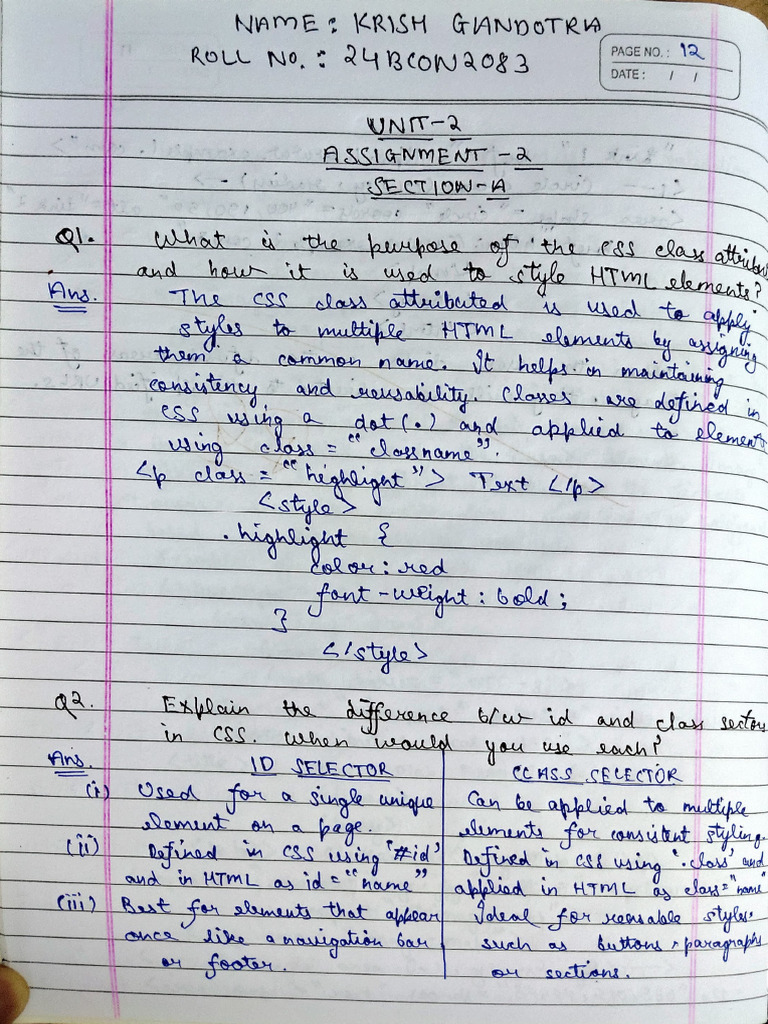 NAME: KRISH GANDOTRA
ROLL NO.: 24BCON2083
PAGE NO.: 12
DATE: / /
UNIT-2
ASSIGNMENT-2
SECTION-A
Q1. What is the purpose of the CSS class attribute
and how it is used to style HTML elements?
Ans. The CSS class attributed is used to apply
styles to multiple HTML elements by assigning
them a common name. It helps in maintaining
consistency and reusability. Classes are defined in
CSS using a dot (.) and applied to elements
using class = "classname".
<p class = "highlight"> Text </p>
<style>
.highlight {
color: red
font-weight: bold;
}
</style>
Q2. Explain the difference b/w id and class sectors
in CSS. When would you use each?
Ans. ID SELECTOR
(i) Used for a single unique
element on a page.
(ii) Defined in CSS using '#id'
and in HTML as id = "name"
(iii) Best for elements that appear
once like a navigation bar
or footer.
CLASS SELECTOR
Can be applied to multiple
elements for consistent styling.
Defined in CSS using '.class' and
applied in HTML as class="name"
Ideal for reusable styles,
such as buttons, paragraphs
or sections.